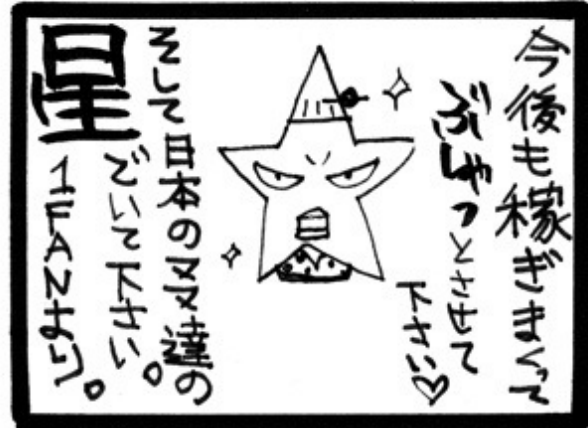 今後も稼ぎまくって
ぶしゃっとさせて
下さい♡
そして日本のヌヌ達の
星
でいて下さい。
1FANより。